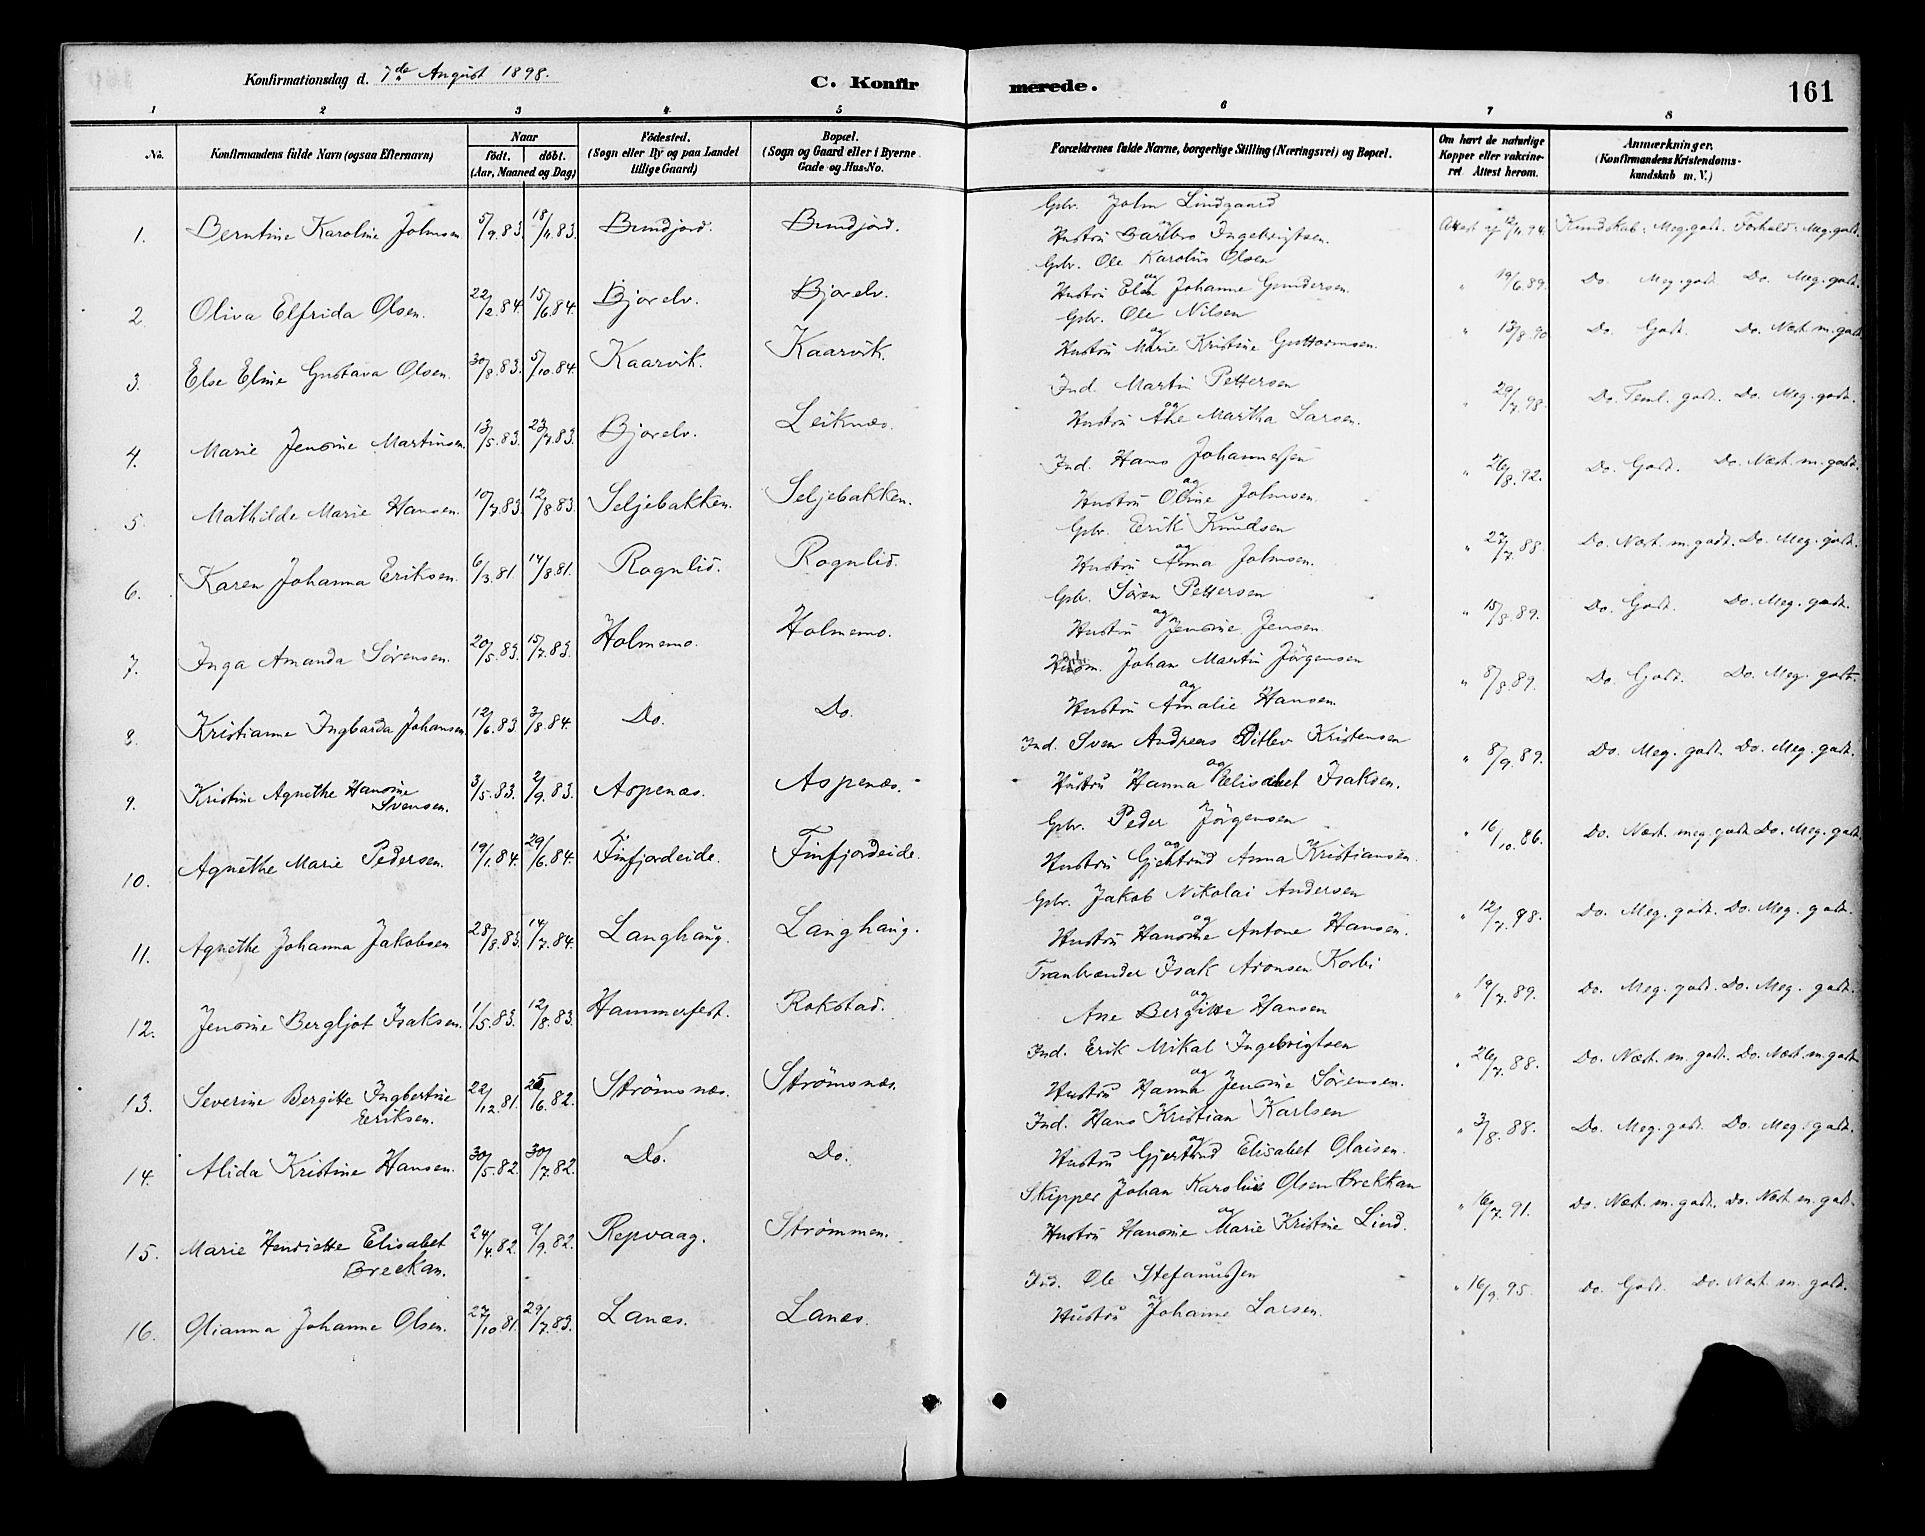 Konfirmationsdag d. 7de August 1898.
C. Konfirmerede.
161
1 2 3 4 5 6 7 8
No.
Konfirmandens fulde Navn (ogsaa Efternavn)
Naar
født. døbt.
(Aar, Maaned og Dag)
Fødested.
(Sogn eller By og paa Landet
tillige Gaard)
Bopæl.
(Sogn og Gaard eller i Byerne
Gade og Hus-No.
Forældrenes fulde Navne, borgerlige Stilling (Næringsvei) og Bopæl.
Om havt de naturlige
Kopper eller vakcine-
ret Attest herom.
Anmærkninger.
(Konfirmandens Kristendoms-
kundskab m. V.)
Gbr. John Lindgaard
1. Berntine Karoline Johnsen 5/9.83. 18/11.83. Bundjord. Bundjord. og Hustru Barbro Ingebrigtsen. Attest af 12/11.94. Kundskab: Meg. godt. Forhold: Meg. godt.
Gbr. Ole Karolius Olsen
2. Oliva Elfrida Olsen. 22/2.84. 15/6.84. Bjorelv. Bjorelv. og Hustru Elen Johanne Gundersen. " 19/6.89. Do. Meg. godt. Do. Meg. godt.
Gbr. Ole Nilsen
3. Else Eline Gustava Olsen. 30/8.83. 5/10.84. Kaarvik. Kaarvik. og Hustru Marie Kristine Guttormsen. " 13/8.90 Do. Godt. Do. Næst. m. godt
Ind. Martin Pettersen
4. Marie Jensine Martinsen. 13/5.83. 23/7.83. Bjorelv. Leiknæs. og Hustru Ane Martha Larsen. " 29/7.98. Do. Teml. godt. Do. Meg. godt.
Ind. Hans Johannessen
5. Mathilde Marie Hansen. 10/7.83. 12/8.83. Seljebakken. Seljebakken. og Hustru Oline Johnsen. " 26/8.92. Do. Godt. Do. Næst. m. godt.
Gbr. Erik Knudsen
6. Karen Johanna Eriksen. 6/3.81. 14/8.81. Rognlid. Rognlid. og Hustru Anna Johnsen. " 27/7.88. Do. Næst. m. godt. Do. Meg. godt.
Gbr. Sören Pettersen
7. Inga Amanda Sørensen. 20/5.83. 15/7.83. Holmemo. Holmemo. og Hustru Jensine Jensen. " 15/8.89. Do. Godt. Do. Meg. godt.
Johan Martin Jörgensen
8. Kristianne Ingbarda Johansen. 12/6.83. 3/8.84. Do. Do. og Hustru Amalie Hansen " 8/8.89. Do. Godt. Do. Meg. godt.
Ind. Sven Andreas Ditlev Kristensen
9. Kristine Agnethe Hansine Svensen. 3/5.83. 2/9.83. Aspenæs. Aspenæs. og Hustru Hanna Elisabet Isaksen. " 8/9.89. Do. Meg. godt. Do. Meg. godt.
Gbr. Peder Jörgensen
10. Agnethe Marie Pedersen. 19/1.84. 29/6.84. Finfjordeide. Finfjordeide. og Hustru Gjertrud Anna Kristiansen. " 16/10.86. Do. Næst. meg. godt. Do. Meg. godt
Gbr. Jakob Nikolai Andersen
11. Agnethe Johanna Jakobsen 28/8.83. 14/7.84. Langhaug. Langhaug. og Hustru Hansine Antone Hansen. " 12/7.98. Do. Meg. godt. Do. Meg. godt.
Tranbrænder Isak Aronsen Korbi
12. Jensine Bergljot Isaksen. 1/5.83. 12/8.83. Hammerfest. Rokstad. og Ane Bergitte Hansen " 19/7.89. Do. Meg. godt. Do. Meg. godt.
Ind. Erik Mikal Ingebrigtsen
13. Severine Bergitte Ingbertine Eriksen. 22/12.81. 25/6.82. Strömsnæs. Strömsnæs. og Hustru Hanna Jensine Sørensen. " 26/7.88. Do. Næst. m. godt. Do. Næst. m. godt
Ind. Hans Kristian Karlsen
14. Alida Kristine Hansen. 30/5.82. 30/7.82. Do. Do. og Hustru Gjertrud Elisabet Olaisen. " 3/8.88. Do. Meg. godt. Do. Meg. godt.
Skipper Johan Karolius Olsen Brekkan
15. Marie Henriette Elisabet Breckan. 24/4.82. 9/9.82. Repvaag. Strømmen. og Hustru Hansine Marie Kristine Lind. " 16/7.91. Do. Næst. m. godt. Do. Næst. m. godt.
Ind. Ole Stefanussen
16. Olianna Johanne Olsen. 27/10.81. 29/7.83. Lanæs. Lanæs. og Hustru Johanne Larsen. " 16/9.95. Do. Godt. Do. Næst. m. godt.